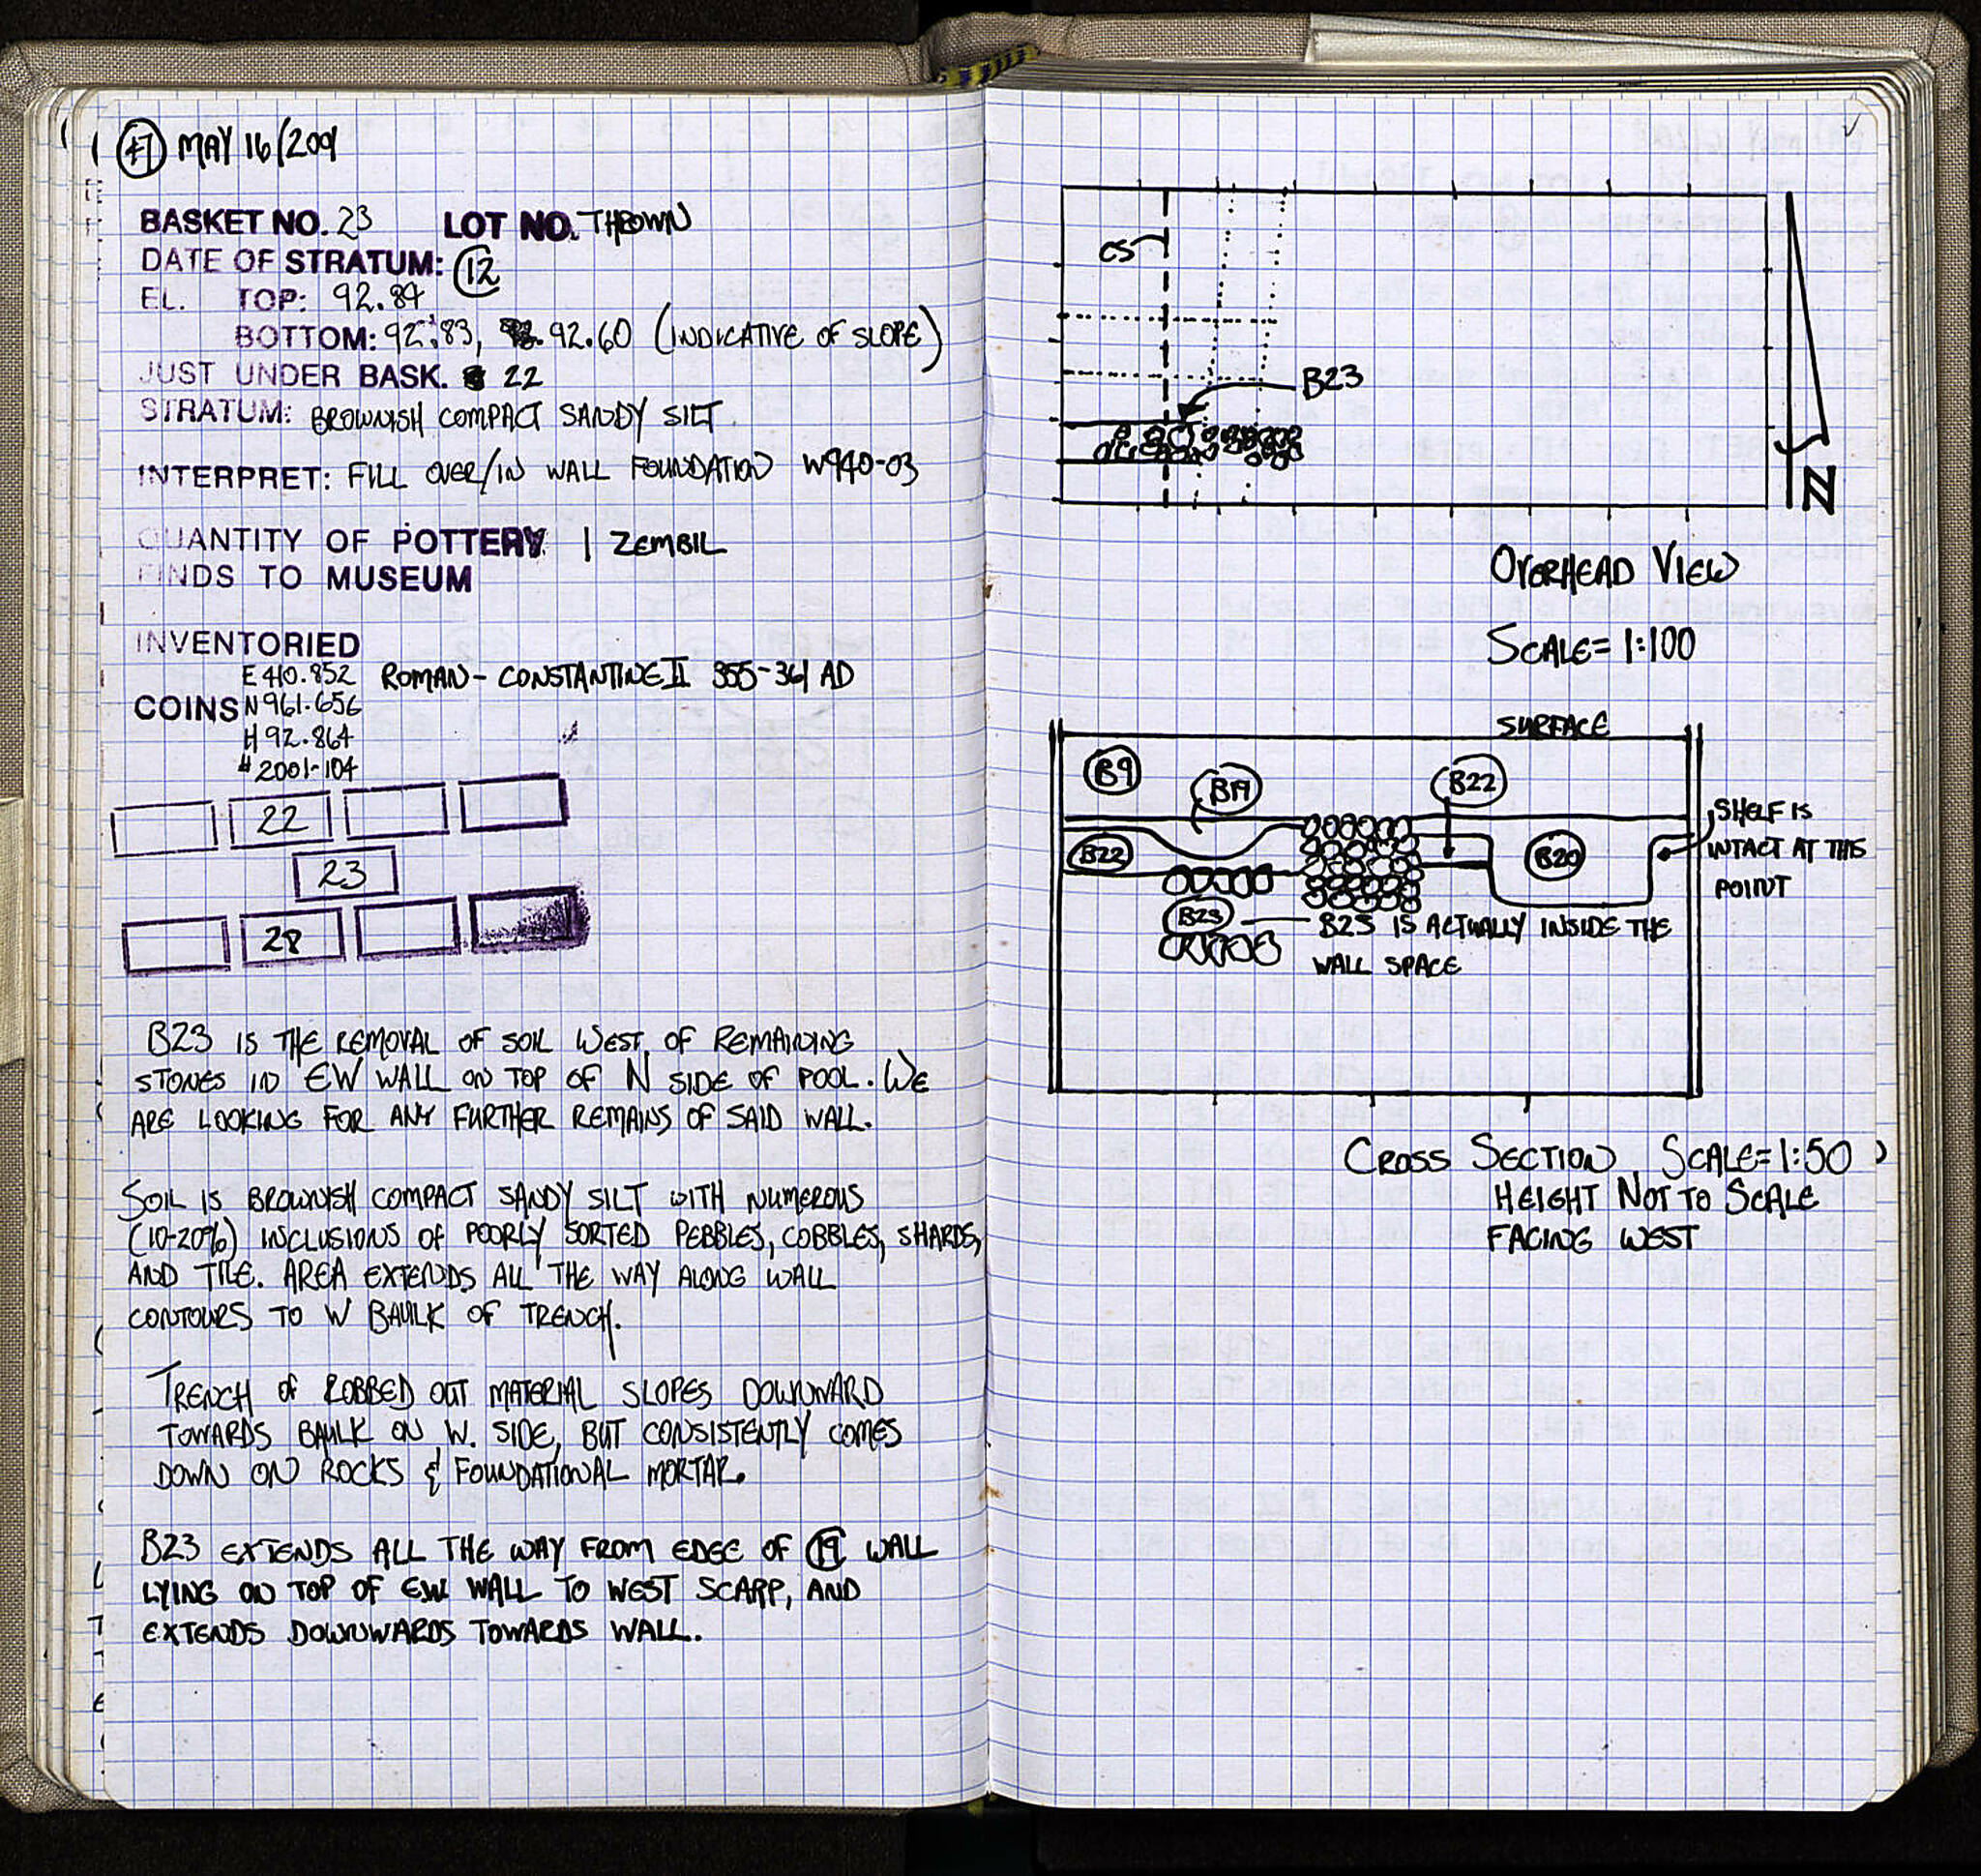 47 MAY 16/2001
BASKET NO. 23 LOT NO. THROWN
DATE OF STRATUM: 12
EL. TOP: 92.84
BOTTOM: 92.83, 92.60 (INDICATIVE OF SLOPE)
JUST UNDER BASK. 22
STRATUM: BROWNISH COMPACT SANDY SILT
INTERPRET: FILL OVER/IN WALL FOUNDATION W940-03
QUANTITY OF POTTERY 1 ZEMBIL
FINDS TO MUSEUM
INVENTORIED
E 410.852 ROMAN - CONSTANTINE II 355-361 AD
COINS N 961.656
H 92.864
# 2001-104
22
23
28
B23 IS THE REMOVAL OF SOIL WEST OF REMAINING
STONES IN EW WALL ON TOP OF N SIDE OF POOL. WE
ARE LOOKING FOR ANY FURTHER REMAINS OF SAID WALL.
SOIL IS BROWNISH COMPACT SANDY SILT WITH NUMEROUS
(10-20%) INCLUSIONS OF POORLY SORTED PEBBLES, COBBLES, SHARDS,
AND TILE. AREA EXTENDS ALL THE WAY ALONG WALL
CONTOURS TO W BAULK OF TRENCH.
TRENCH OF ROBBED OUT MATERIAL SLOPES DOWNWARD
TOWARDS BAULK ON W. SIDE, BUT CONSISTENTLY COMES
DOWN ON ROCKS & FOUNDATIONAL MORTAR.
B23 EXTENDS ALL THE WAY FROM EDGE OF 19 WALL
LYING ON TOP OF EW WALL TO WEST SCARP, AND
EXTENDS DOWNWARDS TOWARDS WALL.
CS
B23
N
OVERHEAD VIEW
SCALE= 1:100
SURFACE
B9
B19
B22
B22
B20
SHELF IS
INTACT AT THIS
POINT
B23
B23 IS ACTUALLY INSIDE THE
WALL SPACE
CROSS SECTION, SCALE=1:50
HEIGHT NOT TO SCALE
FACING WEST